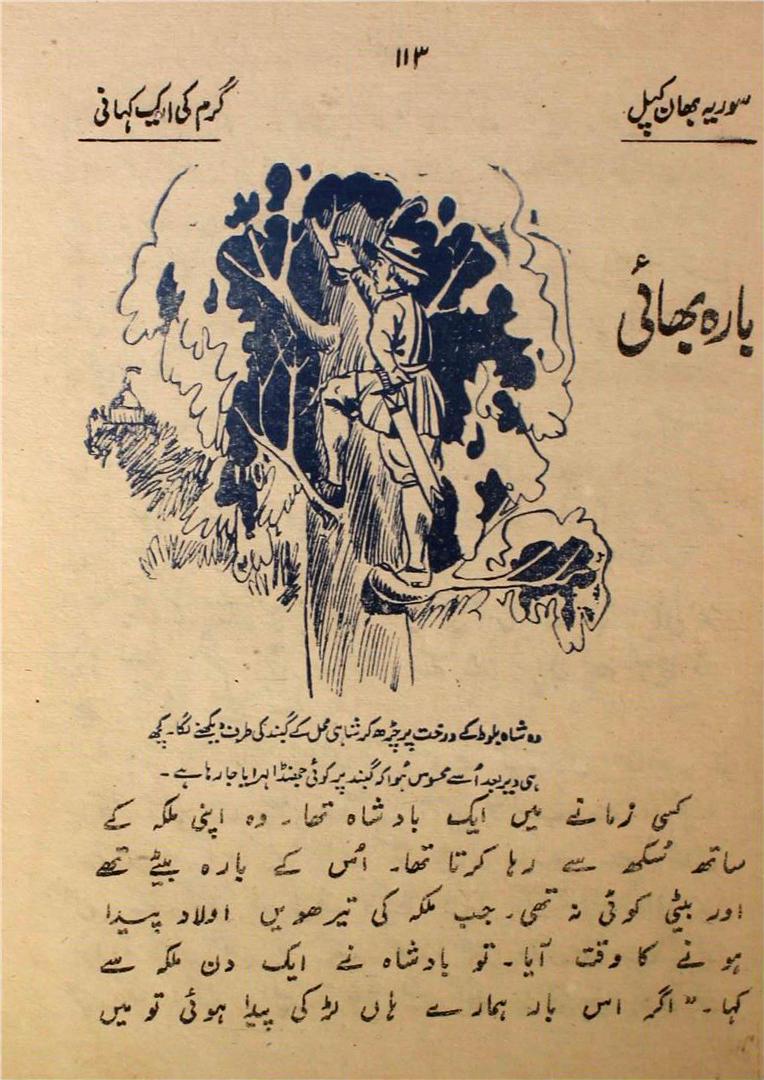 ۱۱۳
سوریہ بھان کپل
گرم کی ایک کہانی
بارہ بھائی
وہ شاہ بلوط کے درخت پر چڑھ کر شاہی محل کے گنبد کی طرف دیکھنے لگا۔ کچھ
ہی دیر بعد اُسے محسوس ہُوا کہ گنبد پر کوئی جھنڈا لہرایا جا رہا ہے۔
کسی زمانے میں ایک بادشاہ تھا۔ وہ اپنی ملکہ کے
ساتھ سُکھ سے رہا کرتا تھا۔ اُس کے بارہ بیٹے تھے
اور بیٹی کوئی نہ تھی۔ جب ملکہ کی تیرھویں اولاد پیدا
ہونے کا وقت آیا۔ تو بادشاہ نے ایک دن ملکہ سے
کہا۔ "اگر اس بار ہمارے ہاں لڑکی پیدا ہوئی تو میں